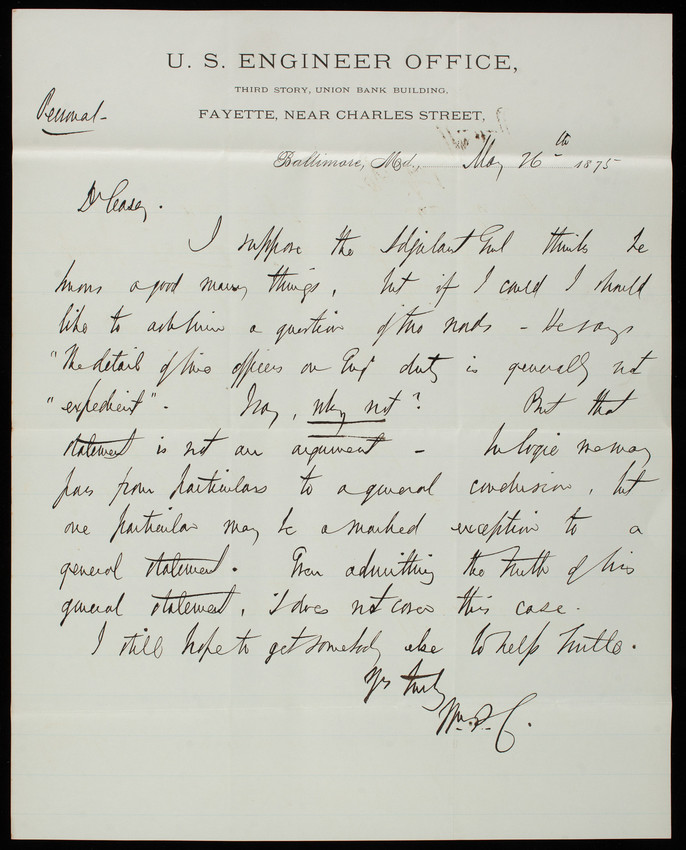 U. S. ENGINEER OFFICE,
THIRD STORY, UNION BANK BUILDING,
FAYETTE, NEAR CHARLES STREET,
Personal-
Baltimore, Md., May 26th 1875
Dr Casey.
I suppose the Adjutant Genl thinks he
knows a good many things, but if I could I should
like to ask him a question of two words - He says
"The detail of line officers on Eng' duty is generally not
"expedient" - Now, why not? But that
statement is not an argument - In logic we may
pass from particulars to a general conclusion, but
one particular may be a marked exception to a
general statement. Even admitting the truth of his
general statement, it does not cover this case.
I still hope to get somebody else to help Turtle.
Yrs truly
Wm. P. C.